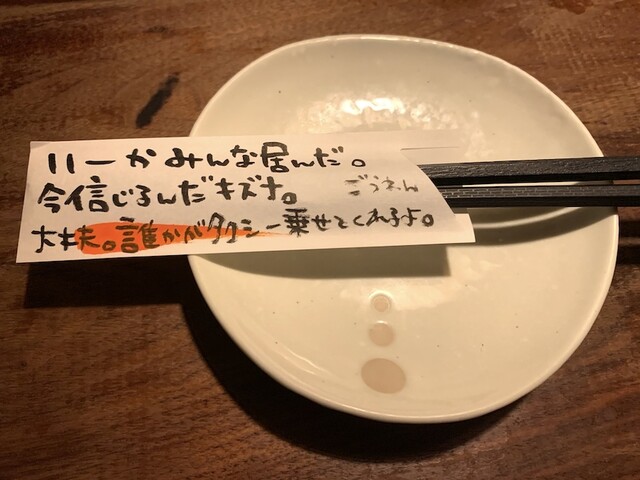 いーかみんな居んだ。
今信じるんだキズナ。
ごうねん
大丈夫。誰かがタクシー乗せてくれるよ。